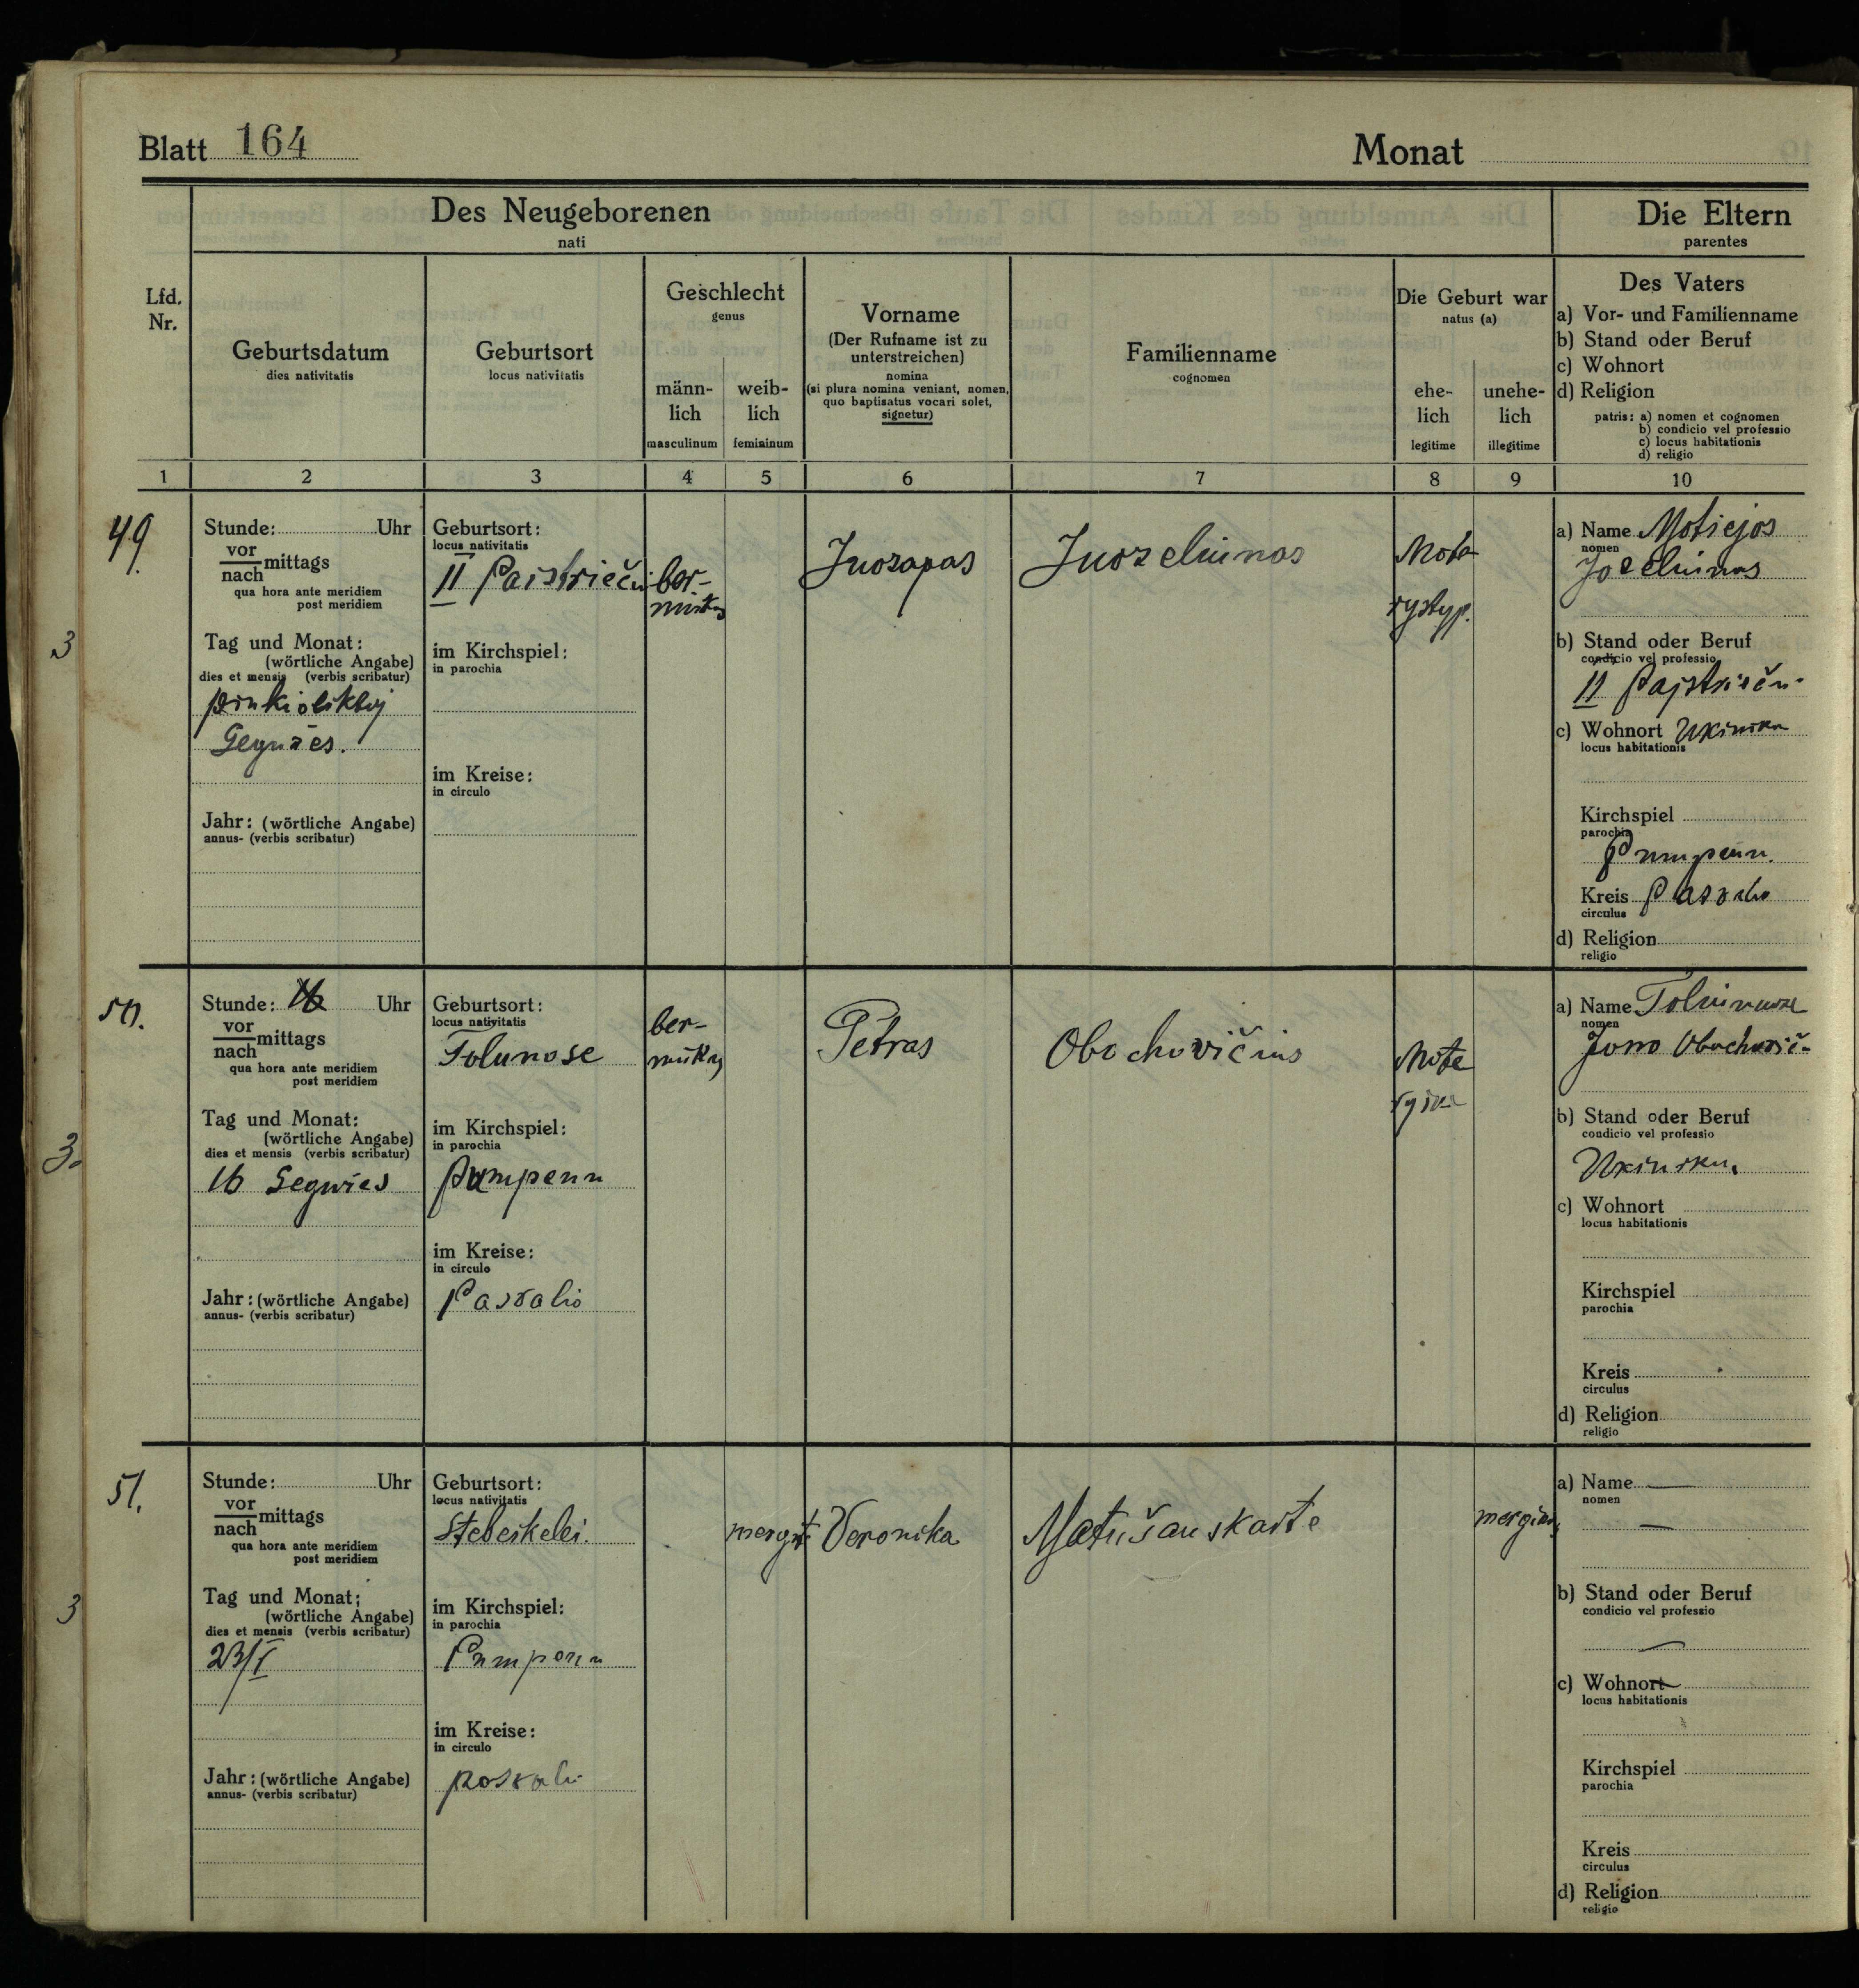 Blatt 164
Monat
Des Neugeborenen
nati
Die Eltern
parentes
Lfd. Nr.
Geburtsdatum
dies nativitatis
Geburtsort
locus nativitatis
Geschlecht
genus
männ-
lich
masculinum
weib-
lich
femininum
Vorname
(Der Rufname ist zu
unterstreichen)
nomina
(si plura nomina veniant, nomen,
quo baptisatus vocari solet,
signetur)
Familienname
cognomen
Die Geburt war
natus (a)
ehe-
lich
legitime
unehe-
lich
illegitime
Des Vaters
a) Vor- und Familienname
b) Stand oder Beruf
c) Wohnort
d) Religion
patris: a) nomen et cognomen
b) condicio vel professio
c) locus habitationis
d) religio
1 2 3 4 5 6 7 8 9 10
49.
3
Stunde: Uhr
vor
nach mittags
qua hora ante meridiem
post meridiem
Tag und Monat:
(wörtliche Angabe)
dies et mensis (verbis scribatur)
Jahr: (wörtliche Angabe)
annus- (verbis scribatur)
Geburtsort:
locus nativitatis
II
im Kirchspiel:
in parochia
im Kreise:
in circulo
ber-
Juozapas
Juozeliunas
a) Name Motiejos
nomen
b) Stand oder Beruf
condicio vel professio
II
c) Wohnort
locus habitationis
Kirchspiel
parochia
Pumpenu
Kreis
circulus
d) Religion
religio
50.
3.
Stunde: 16 Uhr
vor
nach mittags
qua hora ante meridiem
post meridiem
Tag und Monat:
(wörtliche Angabe)
dies et mensis (verbis scribatur)
16
Jahr: (wörtliche Angabe)
annus- (verbis scribatur)
Geburtsort:
locus nativitatis
Tolunose
im Kirchspiel:
in parochia
Pumpenu
im Kreise:
in circulo
Pasvalio
ber-
Petras
Obochovičius
a) Name
nomen
Jono
b) Stand oder Beruf
condicio vel professio
c) Wohnort
locus habitationis
Kirchspiel
parochia
Kreis
circulus
d) Religion
religio
51.
3
Stunde: Uhr
vor
nach mittags
qua hora ante meridiem
post meridiem
Tag und Monat:
(wörtliche Angabe)
dies et mensis (verbis scribatur)
23/I
Jahr: (wörtliche Angabe)
annus- (verbis scribatur)
Geburtsort:
locus nativitatis
im Kirchspiel:
in parochia
Pumpenu
im Kreise:
in circulo
Veronika
Matušauskaite
a) Name
nomen
b) Stand oder Beruf
condicio vel professio
c) Wohnort
locus habitationis
Kirchspiel
parochia
Kreis
circulus
d) Religion
religio